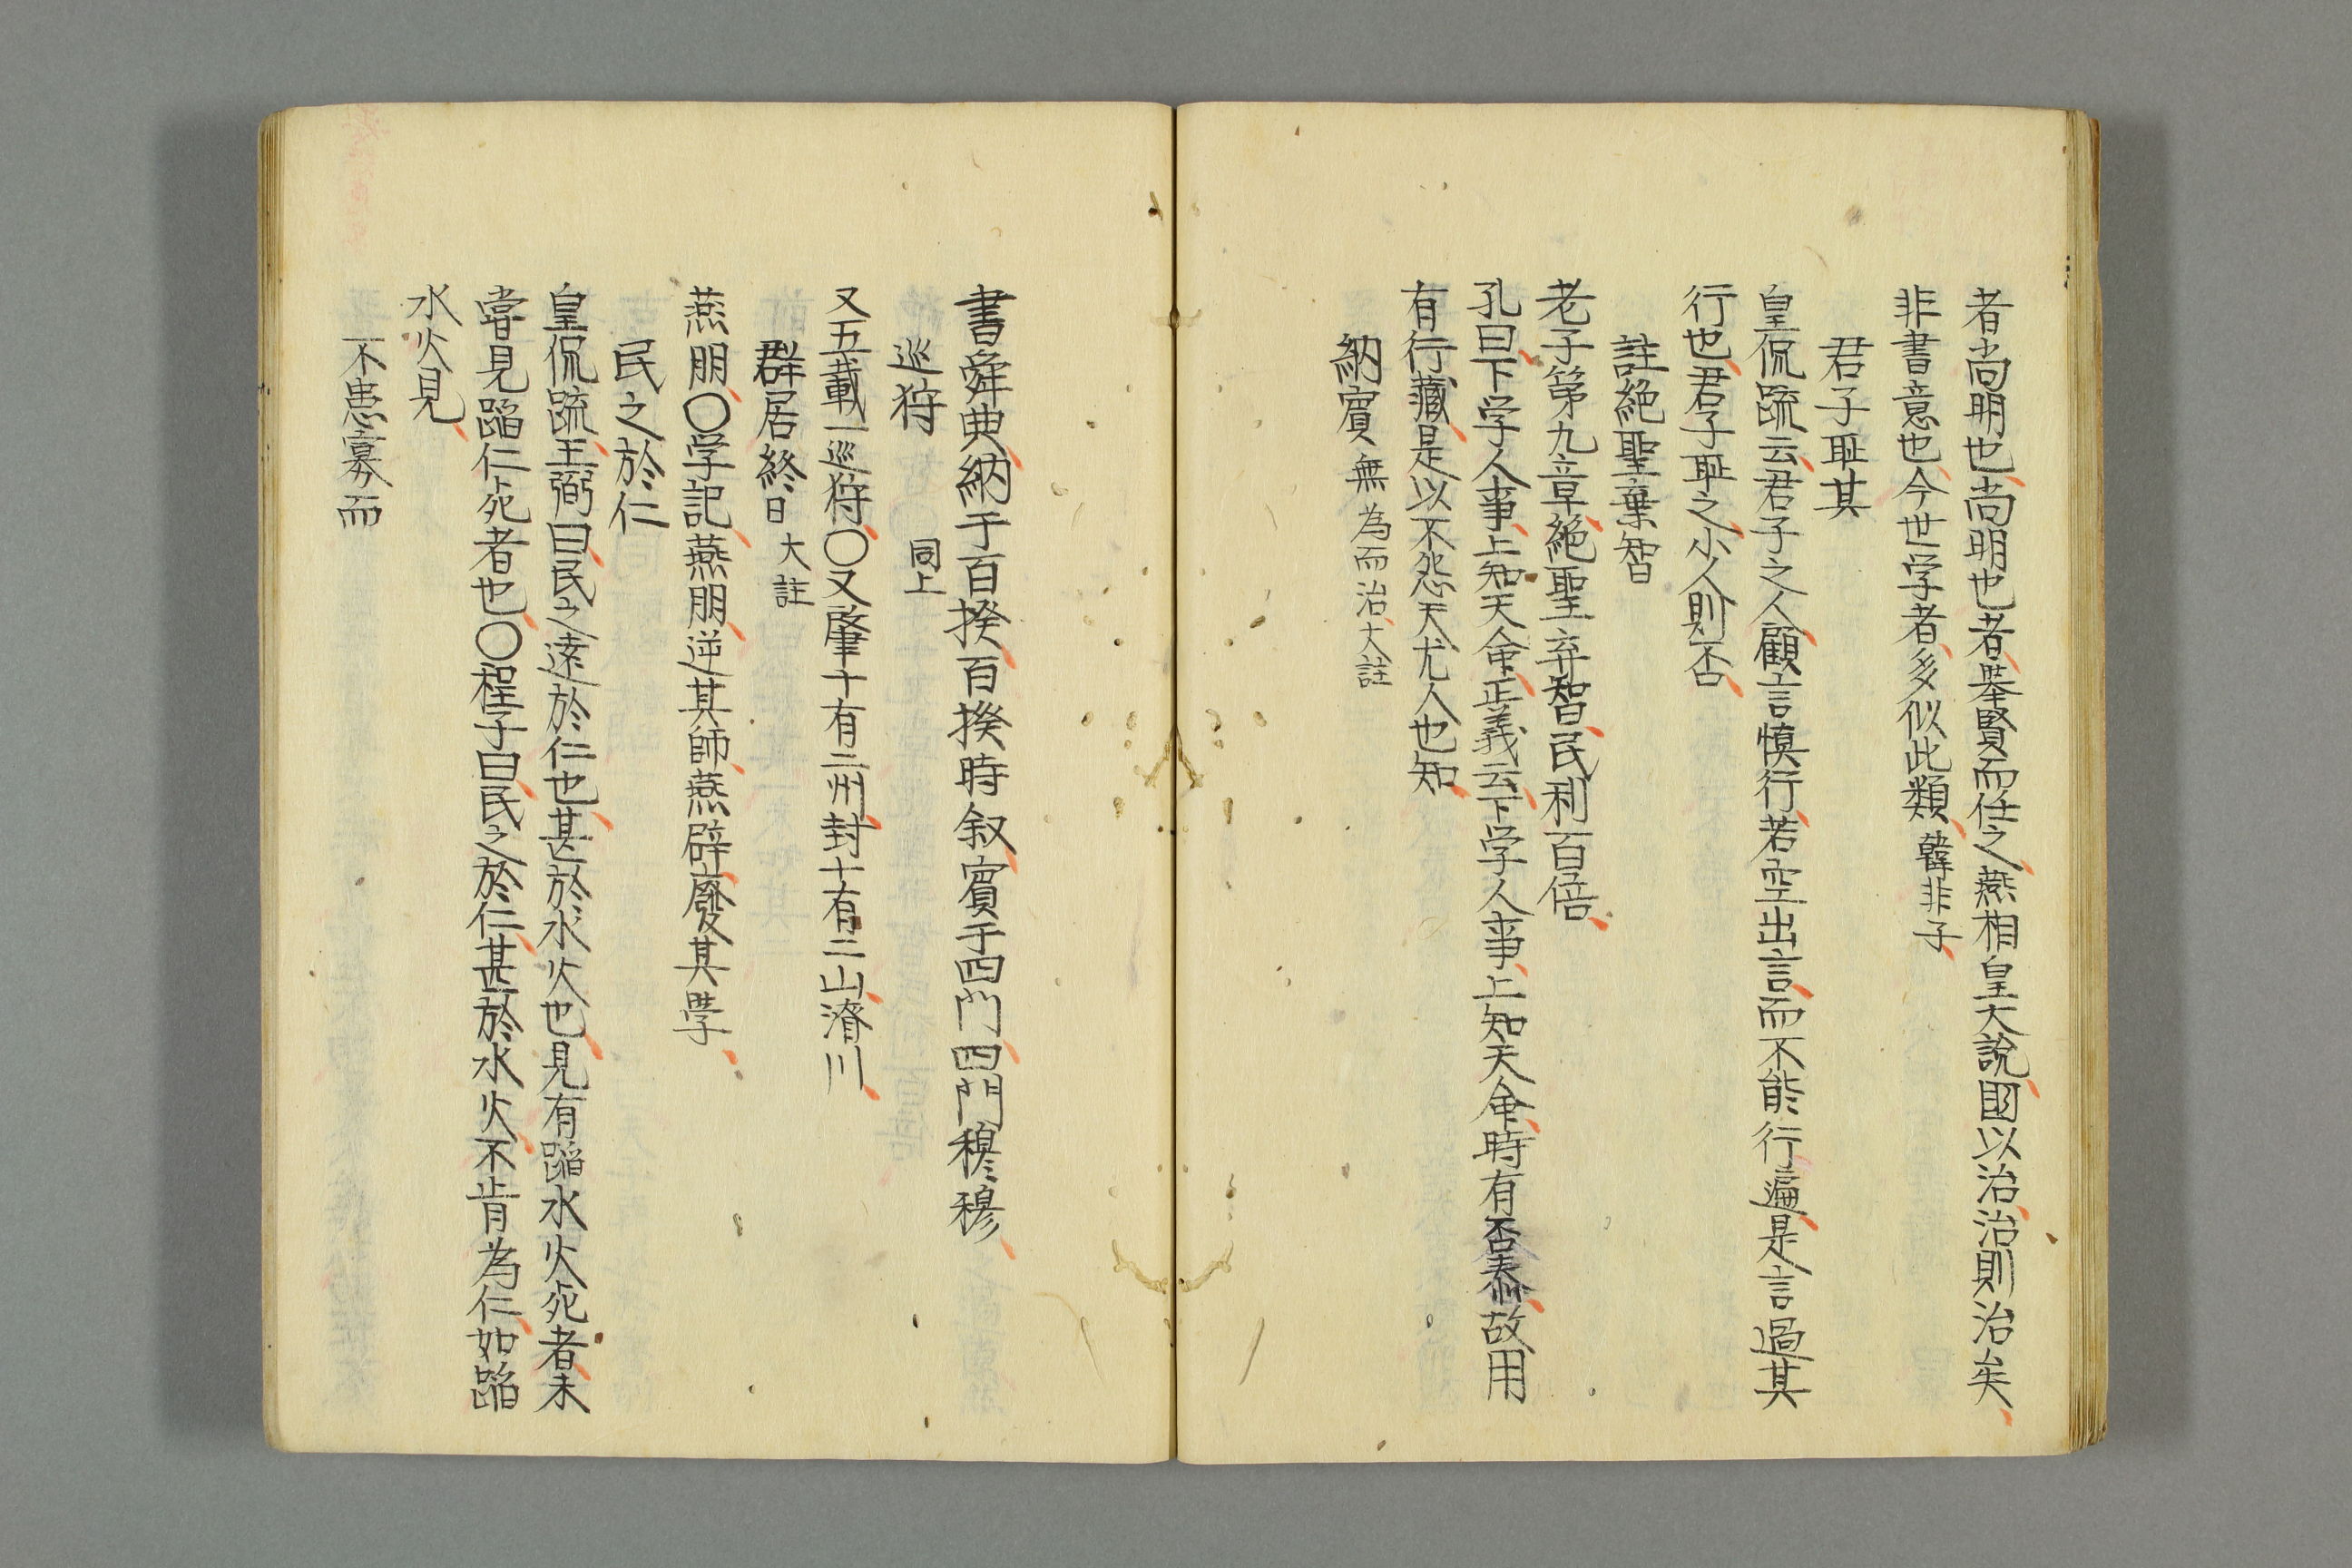 者尚明也尚明也者舉賢而任之燕相皇大說國以治治則治矣
非書意也今世学者多似此類韓非子
君子耻其
皇侃䟽云君子之人顧言慎行若空出言而不能行遍是言過其
行也君子耻之小人則否
註絕聖棄智
老子第九章絕聖弃智民利百倍
孔曰下学人事上知天命正義云下学人事上知天命時有否泰故用
有行藏是以不怨天尤人也知
納賓 無為而治大註
書舜典納于百揆百揆時叙賓于四門四門穆穆
巡狩 同上
又五載一巡狩〇又肇十有二州封十有二山濬川
群居終日 大註
燕朋〇学記燕朋逆其師燕辟廢其學
民之於仁
皇侃䟽王弼曰民之遠於仁也甚於水火也見有蹈水火死者未
嘗見蹈仁死者也〇程子曰民之於仁甚於水火不肯為仁如蹈
水火見
不患寡而